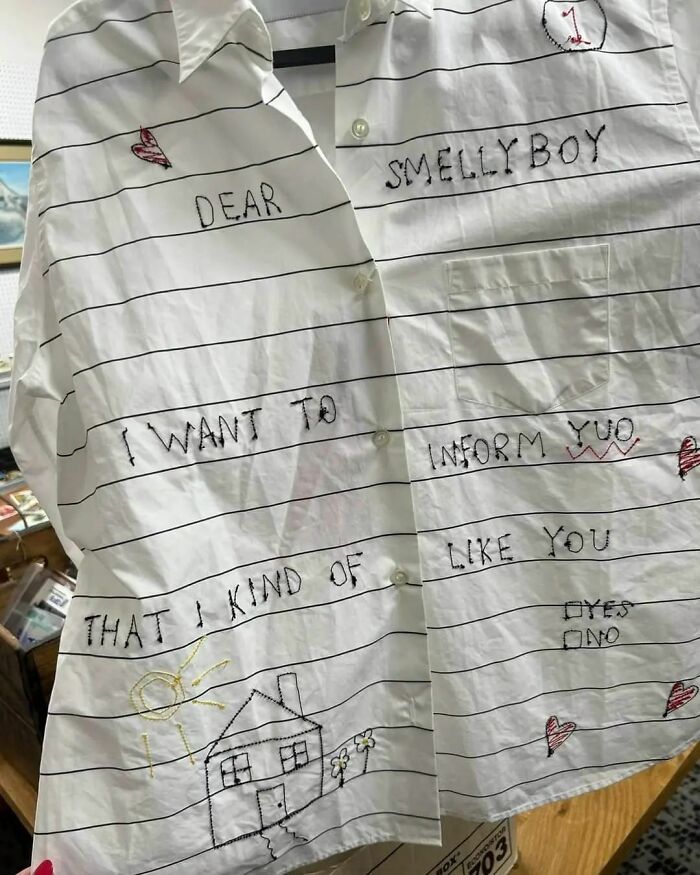 1
DEAR SMELLYBOY
I WANT TO INFORM YUO
THAT I KIND OF LIKE YOU
□YES
□NO
BOX
ECONO/STOR
703